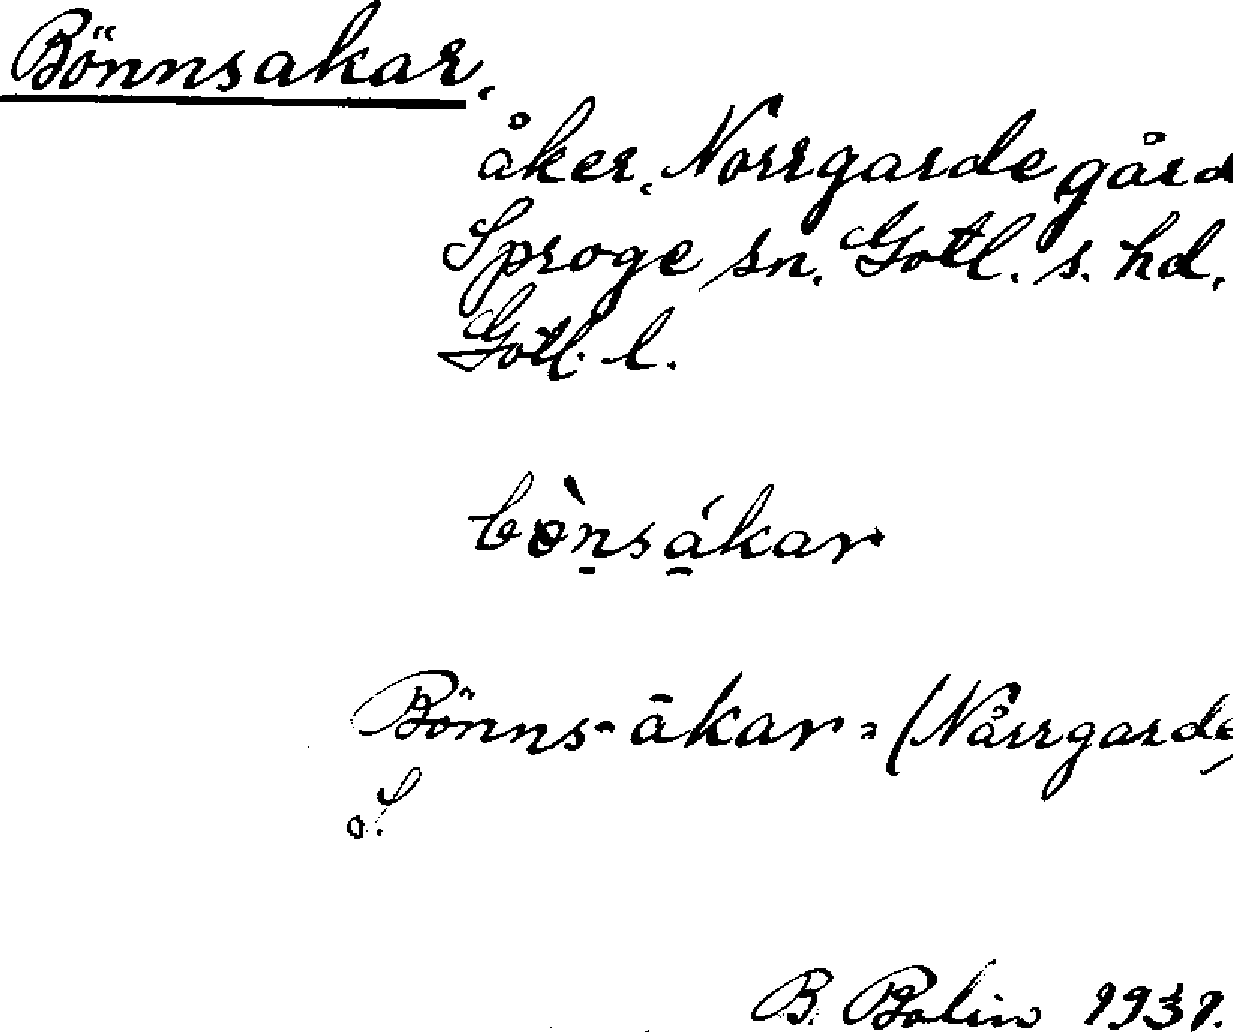 Bönnsakar.
åker, Norrgarde gård
Sproge sn. Gotl. s. hd.
Gotl. l.
bön̠sá̠kar
Bönns-ākar = (Nårrgarde,
S.
B. Bolin 1931.